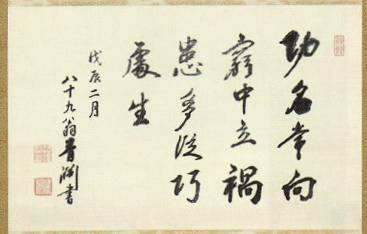 功名常向
窮中立禍
患多従巧
處生
戊辰二月
八十九翁青淵書